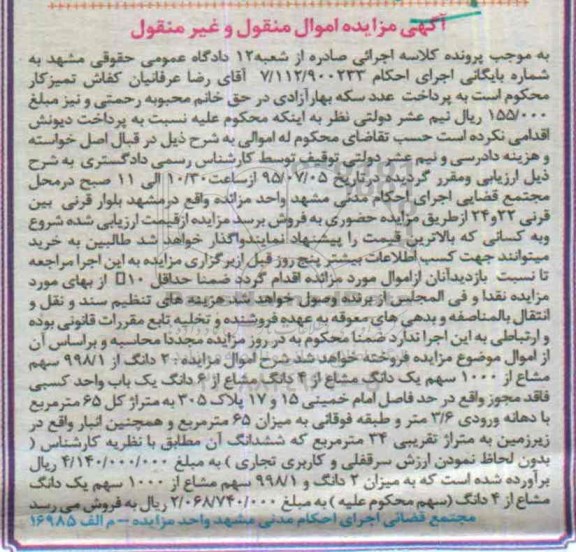 آگهی مزایده اموال منقول و غیر منقول
به موجب پرونده کلاسه اجرائی صادره از شعبه۱۲ دادگاه عمومی حقوقی مشهد به
شماره بایگانی اجرای احکام ۷/۱۱۲/۹۰۰۲۳۳ آقای رضا عرفانیان کفاش تمیزکار
محکوم است به پرداخت عدد سکه بهارآزادی در حق خانم محبوبه رحمتی و نیز مبلغ
۱۵۵/۰۰۰ ریال نیم عشر دولتی نظر به اینکه محکوم علیه نسبت به پرداخت دیونش
اقدامی نکرده است حسب تقاضای محکوم له اموالی به شرح ذیل در قبال اصل خواسته
و هزینه دادرسی و نیم عشر دولتی توقیف توسط کارشناس رسمی دادگستری به شرح
ذیل ارزیابی ومقرر گردیده درتاریخ ۹۵/۰۷/۰۵ ازساعت۱۰/۳۰ الی ۱۱ صبح درمحل
مجتمع قضایی اجرای احکام مدنی مشهد واحد مزایده واقع درمشهد بلوار قرنی بین
قرنی ۲۲و۲۴ ازطریق مزایده حضوری به فروش برسد مزایده ازقیمت ارزیابی شده شروع
وبه کسانی که بالاترین قیمت را پیشنهاد نمایندواگذار خواهد شد طالبین به خرید
میتوانند جهت کسب اطلاعات بیشتر پنج روز قبل ازبرگزاری مزایده به این اجرا مراجعه
تا نسبت بازدیدآنان ازاموال مورد مزائده اقدام گردد ضمنا حداقل ۱۰□ از بهای مورد
مزایده نقدا و فی المجلس از برنده وصول خواهد شد هزینه های تنظیم سند و نقل و
انتقال بالمناصفه و بدهی های معوقه به عهده فروشنده و تخلیه تابع مقررات قانونی بوده
و ارتباطی به این اجرا ندارد ضمنا محکوم به در روز مزایده مجددا محاسبه و براساس آن
از اموال موضوع مزایده فروخته خواهد شد شرح اموال مزایده: ۲ دانگ از ۹۹۸/۱ سهم
مشاع از ۱۰۰۰ سهم یک دانگ مشاع از ۴ دانگ مشاع از ۶ دانگ یک باب واحد کسبی
فاقد مجوز واقع در حد فاصل امام خمینی ۱۵ و ۱۷ پلاک ۳۰۵ به متراژ کل ۶۵ مترمربع
با دهانه ورودی ۳/۶ متر و طبقه فوقانی به میزان ۶۵ مترمربع و همچنین انبار واقع در
زیرزمین به متراژ تقریبی ۳۴ مترمربع که ششدانگ آن مطابق با نظریه کارشناس (
بدون لحاظ نمودن ارزش سرقفلی و کاربری تجاری ) به مبلغ ۴/۱۴۰/۰۰۰/۰۰۰ ریال
برآورده شده است که به میزان ۲ دانگ و ۹۹۸/۱ سهم مشاع از ۱۰۰۰ سهم یک دانگ
مشاع از ۴ دانگ (سهم محکوم علیه ) به مبلغ ۲/۰۶۸/۷۴۰/۰۰۰ ریال به فروش می رسد
مجتمع قضائی اجرای احکام مدنی مشهد واحد مزایده – م الف ۱۶۹۸۵